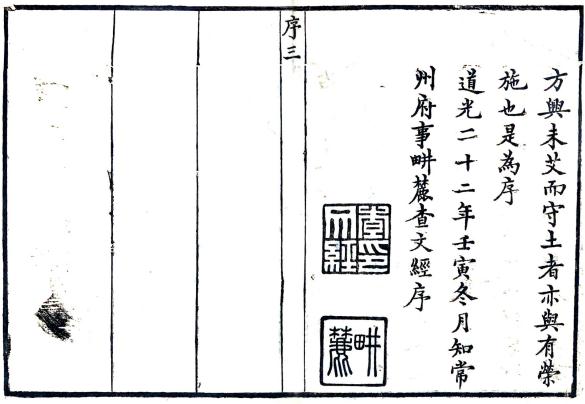 方興未艾而守土者亦與有榮
施也是為序
道光二十二年壬寅冬月知常
州府事畊麓查文經序
查文經印
畊麓
序三